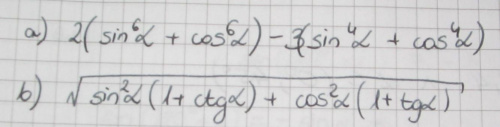 a) 2(sin⁶α + cos⁶α) - 3(sin⁴α + cos⁴α)
b) √(sin²α(1+ctgα) + cos²α(1+tgα))